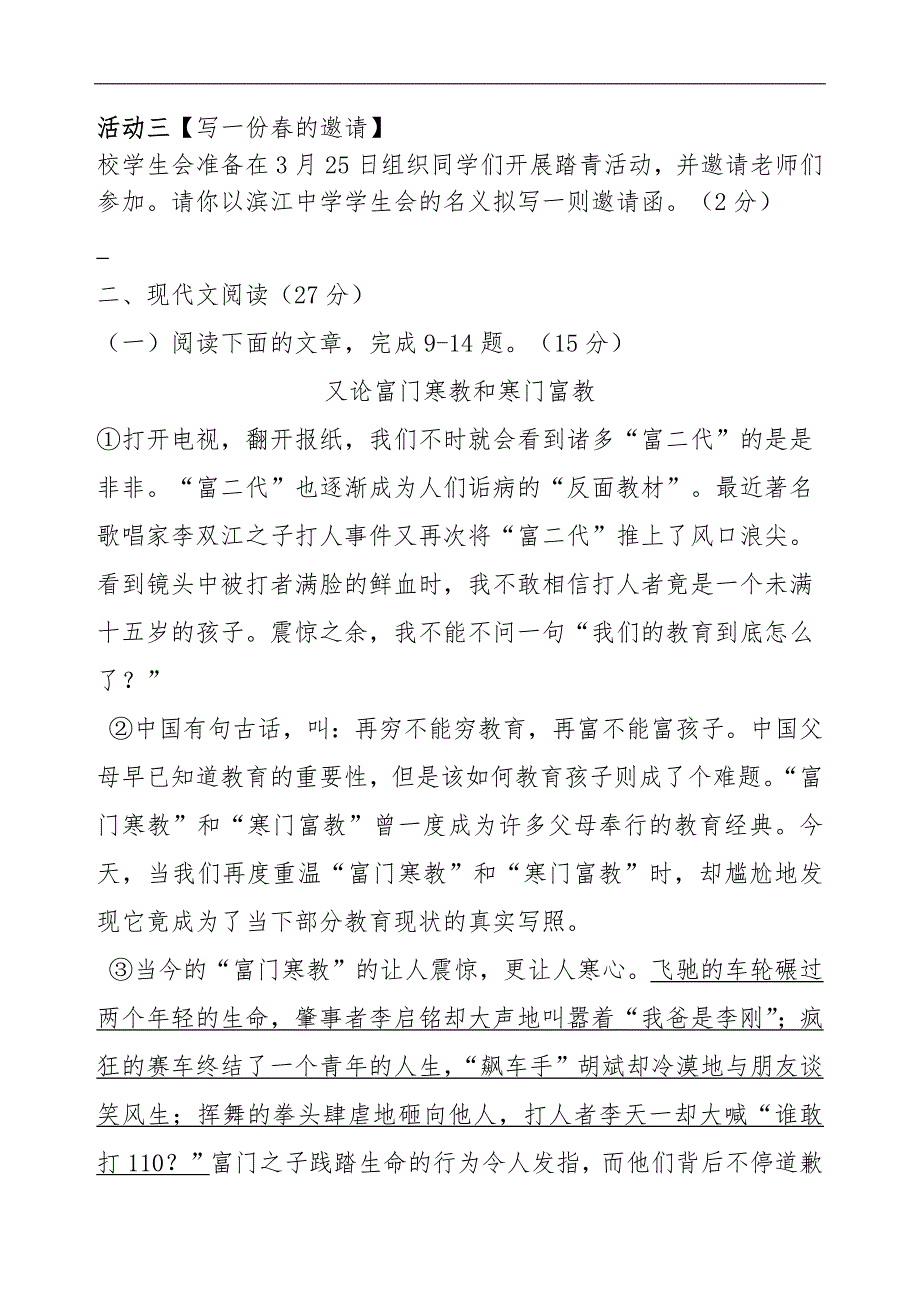 活动三【写一份春的邀请】
校学生会准备在3月25日组织同学们开展踏青活动，并邀请老师们
参加。请你以滨江中学学生会的名义拟写一则邀请函。（2分）
_
二、现代文阅读（27分）
（一）阅读下面的文章，完成9-14题。（15分）
又论富门寒教和寒门富教
①打开电视，翻开报纸，我们不时就会看到诸多“富二代”的是是
非非。“富二代”也逐渐成为人们诟病的“反面教材”。最近著名
歌唱家李双江之子打人事件又再次将“富二代”推上了风口浪尖。
看到镜头中被打者满脸的鲜血时，我不敢相信打人者竟是一个未满
十五岁的孩子。震惊之余，我不能不问一句“我们的教育到底怎么
了？”
②中国有句古话，叫：再穷不能穷教育，再富不能富孩子。中国父
母早已知道教育的重要性，但是该如何教育孩子则成了个难题。“富
门寒教”和“寒门富教”曾一度成为许多父母奉行的教育经典。今
天，当我们再度重温“富门寒教”和“寒门富教”时，却尴尬地发
现它竟成为了当下部分教育现状的真实写照。
③当今的“富门寒教”的让人震惊，更让人寒心。飞驰的车轮碾过
两个年轻的生命，肇事者李启铭却大声地叫嚣着“我爸是李刚”；疯
狂的赛车终结了一个青年的人生，“飙车手”胡斌却冷漠地与朋友谈
笑风生；挥舞的拳头肆虐地砸向他人，打人者李天一却大喊“谁敢
打110？”富门之子践踏生命的行为令人发指，而他们背后不停道歉